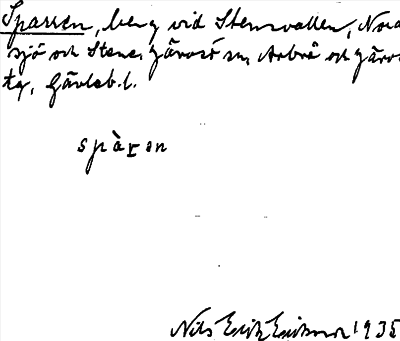 Sparren, berg vid Stensvallen, Nord
sjö och Stene, Järvsö sn, Arbrå och Järvs
tg, Gävleb.l.
spàrɛn
Nils Erik Eriksson 1935